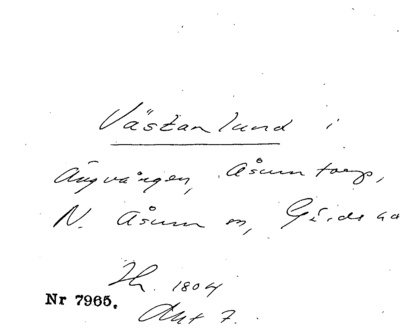 Västanlund i
Ängvången, Åsumtorp,
N. Åsum sn, Gärds hd
1804
Nr 7965.
Akt 7.